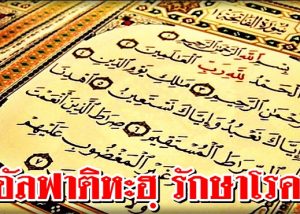 بِسْمِ اللَّهِ الرَّحْمَٰنِ الرَّحِيمِ ١
الْحَمْدُ لِلَّهِ رَبِّ الْعَالَمِينَ ٢
الرَّحْمَٰنِ الرَّحِيمِ ٣ مَالِكِ يَوْمِ الدِّينِ ٤
إِيَّاكَ نَعْبُدُ وَإِيَّاكَ نَسْتَعِينُ ٥ اهْدِنَا
الصِّرَاطَ الْمُسْتَقِيمَ ٦ صِرَاطَ الَّذِينَ أَنْعَمْتَ
عَلَيْهِمْ غَيْرِ الْمَغْضُوبِ عَلَيْهِمْ
อัลฟาติหะฮฺ รักษาโรค